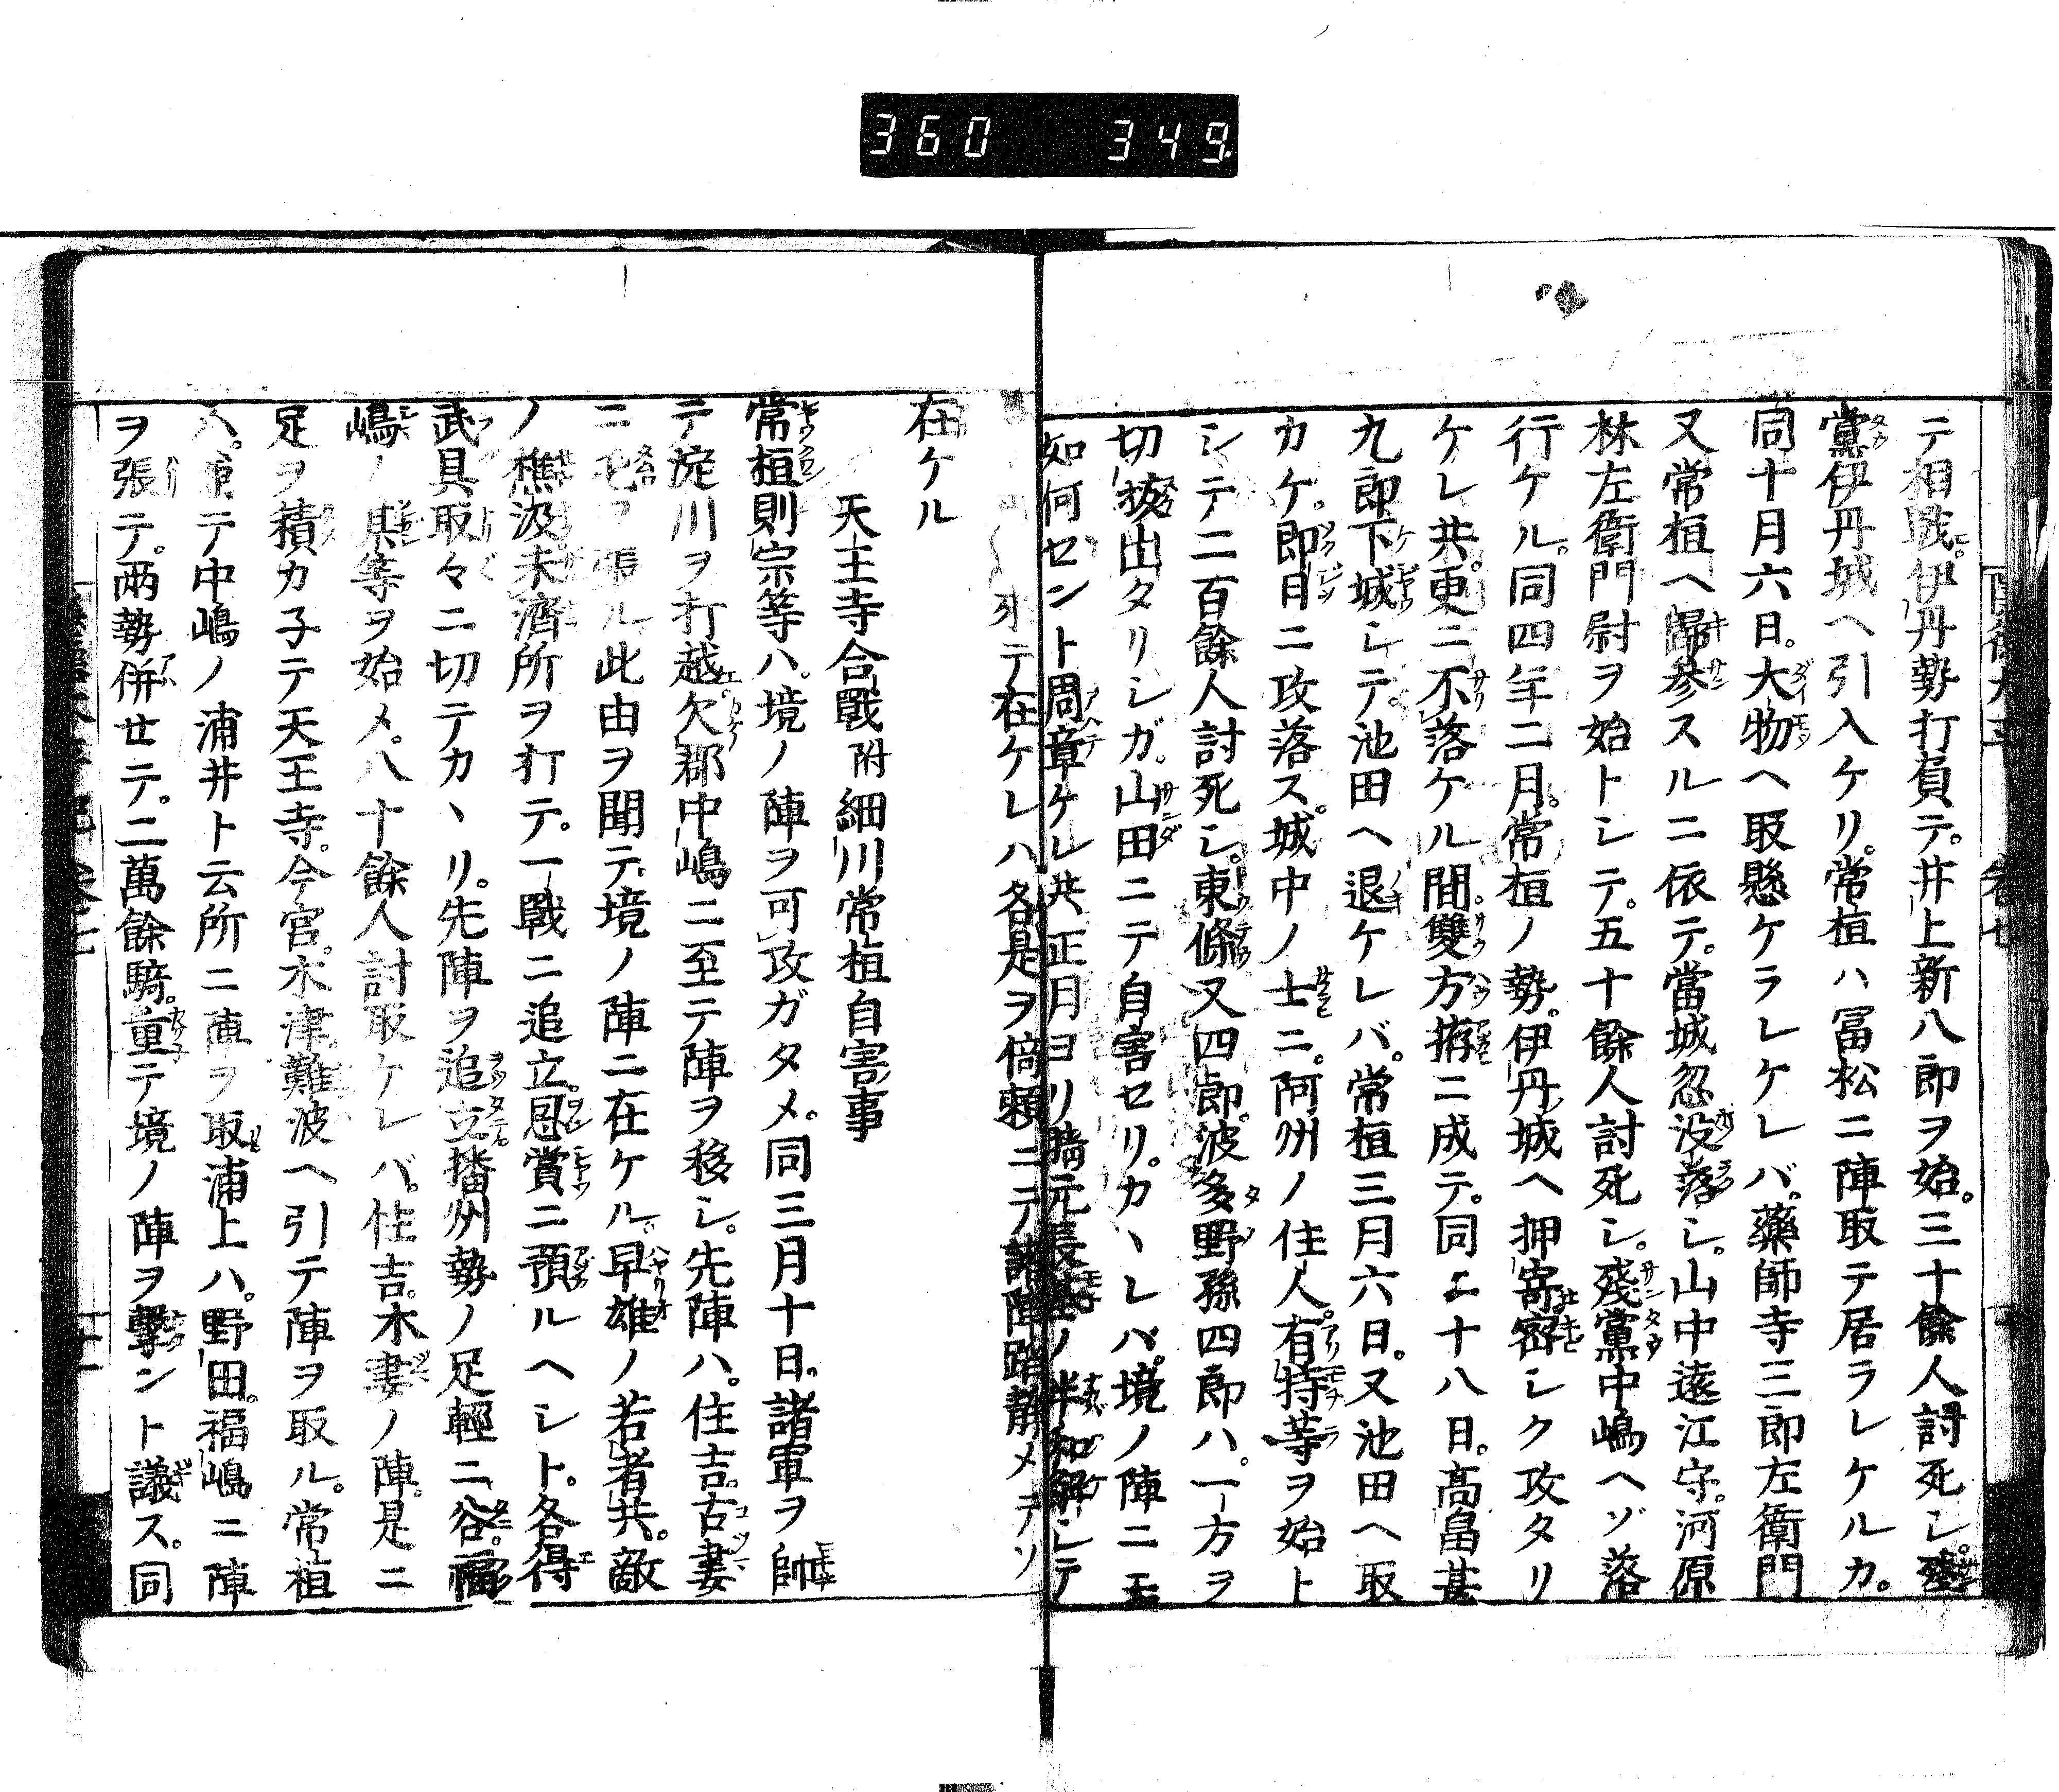 360 349
テ相戰。伊丹勢打負テ。井上新八郎ヲ始。三十餘人討死シ。殘
黨伊丹城ヘ引入ケリ。常植ハ冨松ニ陣取テ居ラレケルカ。
同十月六日。大物ヘ取懸ケラレケレバ。藥師寺三郎左衞門
又常植ヘ歸參スルニ依テ。當城忽沒落シ。山中遠江守。河原
林左衞門尉ヲ始トシテ。五十餘人討死シ。殘黨中嶋ヘゾ落
行ケル。同四年二月。常植ノ勢。伊丹城ヘ押寄密シク攻タリ
ケレ共。更ニ不落ケル間。雙方拵ニ成テ。同十八日。高畠甚
九郎下城シテ。池田ヘ退ケレバ。常植三月六日。又池田ヘ取
カケ。即日ニ攻落ス。城中ノ士ニ。阿州ノ住人。有持等ヲ始ト
シテ二百餘人討死シ。東條又四郎。波多野孫四郎ハ。一方ヲ
切拔出タリシガ。山田ニテ自害セリ。カヽレバ。境ノ陣ニモ
如何セント周章ケレ共正月ヨリ晴元長基ノ半和解シテ
テ在ケレハ各是ヲ倚頼ニテ諸陣蹈靜メテソ
在ケル
天王寺合戰附細川常植自害事
常植則宗等ハ。境ノ陣ヲ可攻ガタメ。同三月十日。諸軍ヲ帥
テ淀川ヲ打越。欠郡中嶋ニ至テ陣ヲ移シ。先陣ハ。住吉。古妻
ニ張ル此由ヲ聞テ。境ノ陣ニ在ケル。早雄ノ若者共。敵
ノ樵汲未濟所ヲ打テ。一戰ニ追立。恩賞ニ預ルヘシト。各得
武具取々ニ切テカヽリ。先陣ヲ追立播州勢ノ足輕ニ谷。福
嶋ノ某等ヲ始メ。八十餘人討取ケレバ。住吉。木妻ノ陣。是ニ
足ヲ積カ子テ天王寺。今宮。木津。難波ヘ引テ陣ヲ取ル。常植
ハ。テ中嶋ノ浦井ト云所ニ陣ヲ取。浦上ハ。野田。福嶋ニ陣
ヲ張テ。兩勢併セテ。二萬餘騎。重テ境ノ陣ヲ擊ント議ス。同